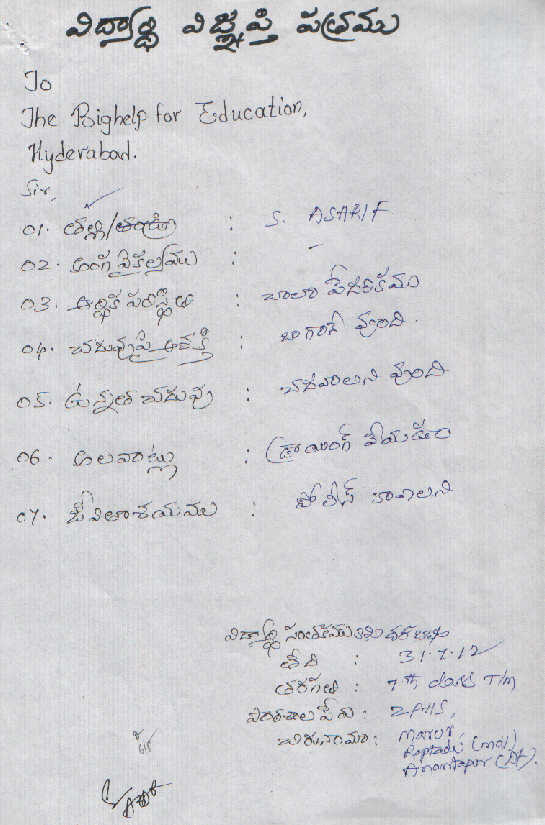 విద్యార్థి విజ్ఞప్తి పత్రము
To
The Bighelp for Education,
Hyderabad.
Sir,
01. తల్లి/తండ్రి : S. ASARIF
02. అంగ వైకల్యము : -
03. ఆర్థిక పరిస్థితి : చాలా పేదరికము
04. చదువుపై ఆసక్తి : బాగానే వుంది.
05. ఉన్నత చదువు : చదవాలని వుంది
06. అలవాట్లు : డ్రాయింగ్ వేయడం
07. జీవితాశయము : పోలీస్ కావాలని
విద్యార్థి సంతకము
తేది : 31.7.12
తరగతి : 7th class T/m
పాఠశాల పేరు : ZPHS,
చిరునామా :
Raptadu (md)
Anantapur (Dt).